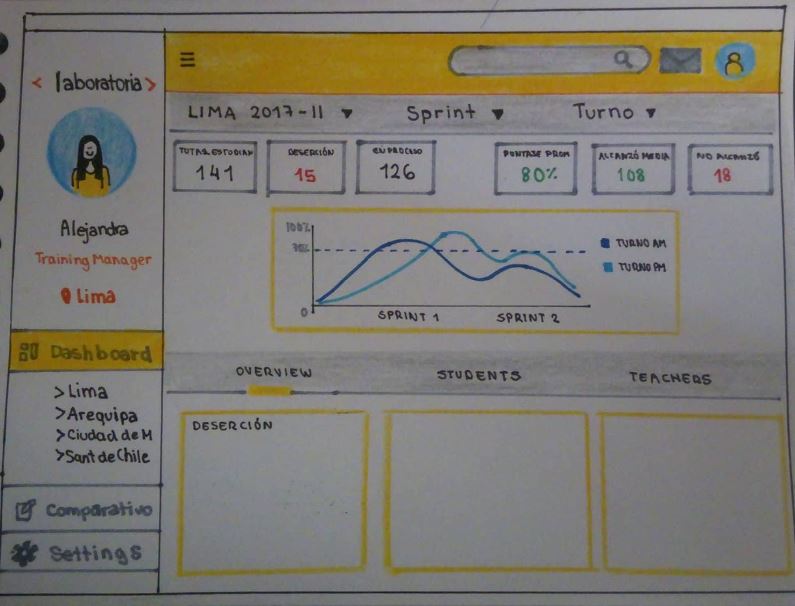 < laboratoria >
Alejandra
Training Manager
Lima
Dashboard
> Lima
> Arequipa
> Ciudad de M
> Sant de Chile
Comparativo
Settings
LIMA 2017-II ▼ Sprint ▼ Turno ▼
TOTAL ESTUDIAN
141
DESERCIÓN
15
EN PROCESO
126
PUNTAJE PROM
80%
ALCANZÓ MEDIA
108
NO ALCANZÓ
18
100%
70%
0
SPRINT 1 SPRINT 2
TURNO AM
TURNO PM
OVERVIEW STUDENTS TEACHERS
DESERCIÓN